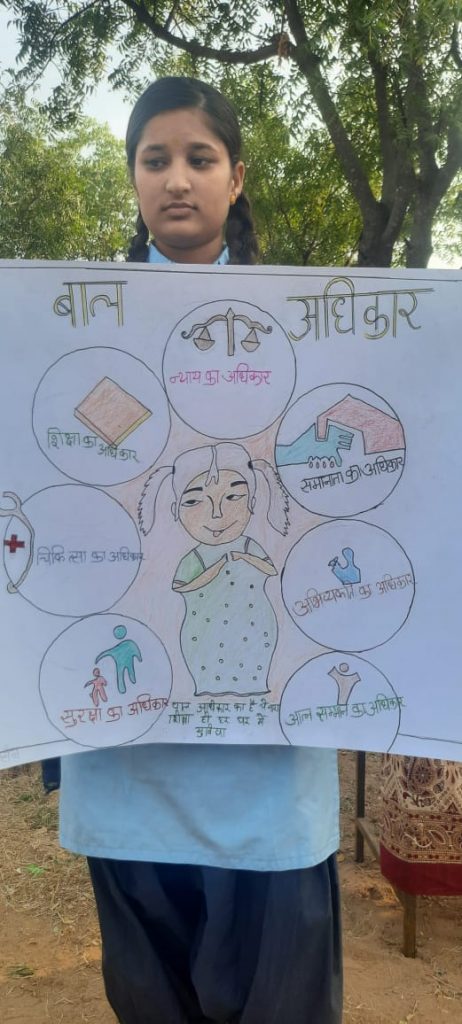 बाल अधिकार
न्याय का अधिकार
शिक्षा का
अधिकार
समानता का अधिकार
चिकित्सा का अधिकार
अभिव्यक्ति का अधिकार
सुरक्षा का अधिकार
आत्म सम्मान का अधिकार
बाल अधिकार का है
शिक्षा हो घर घर में